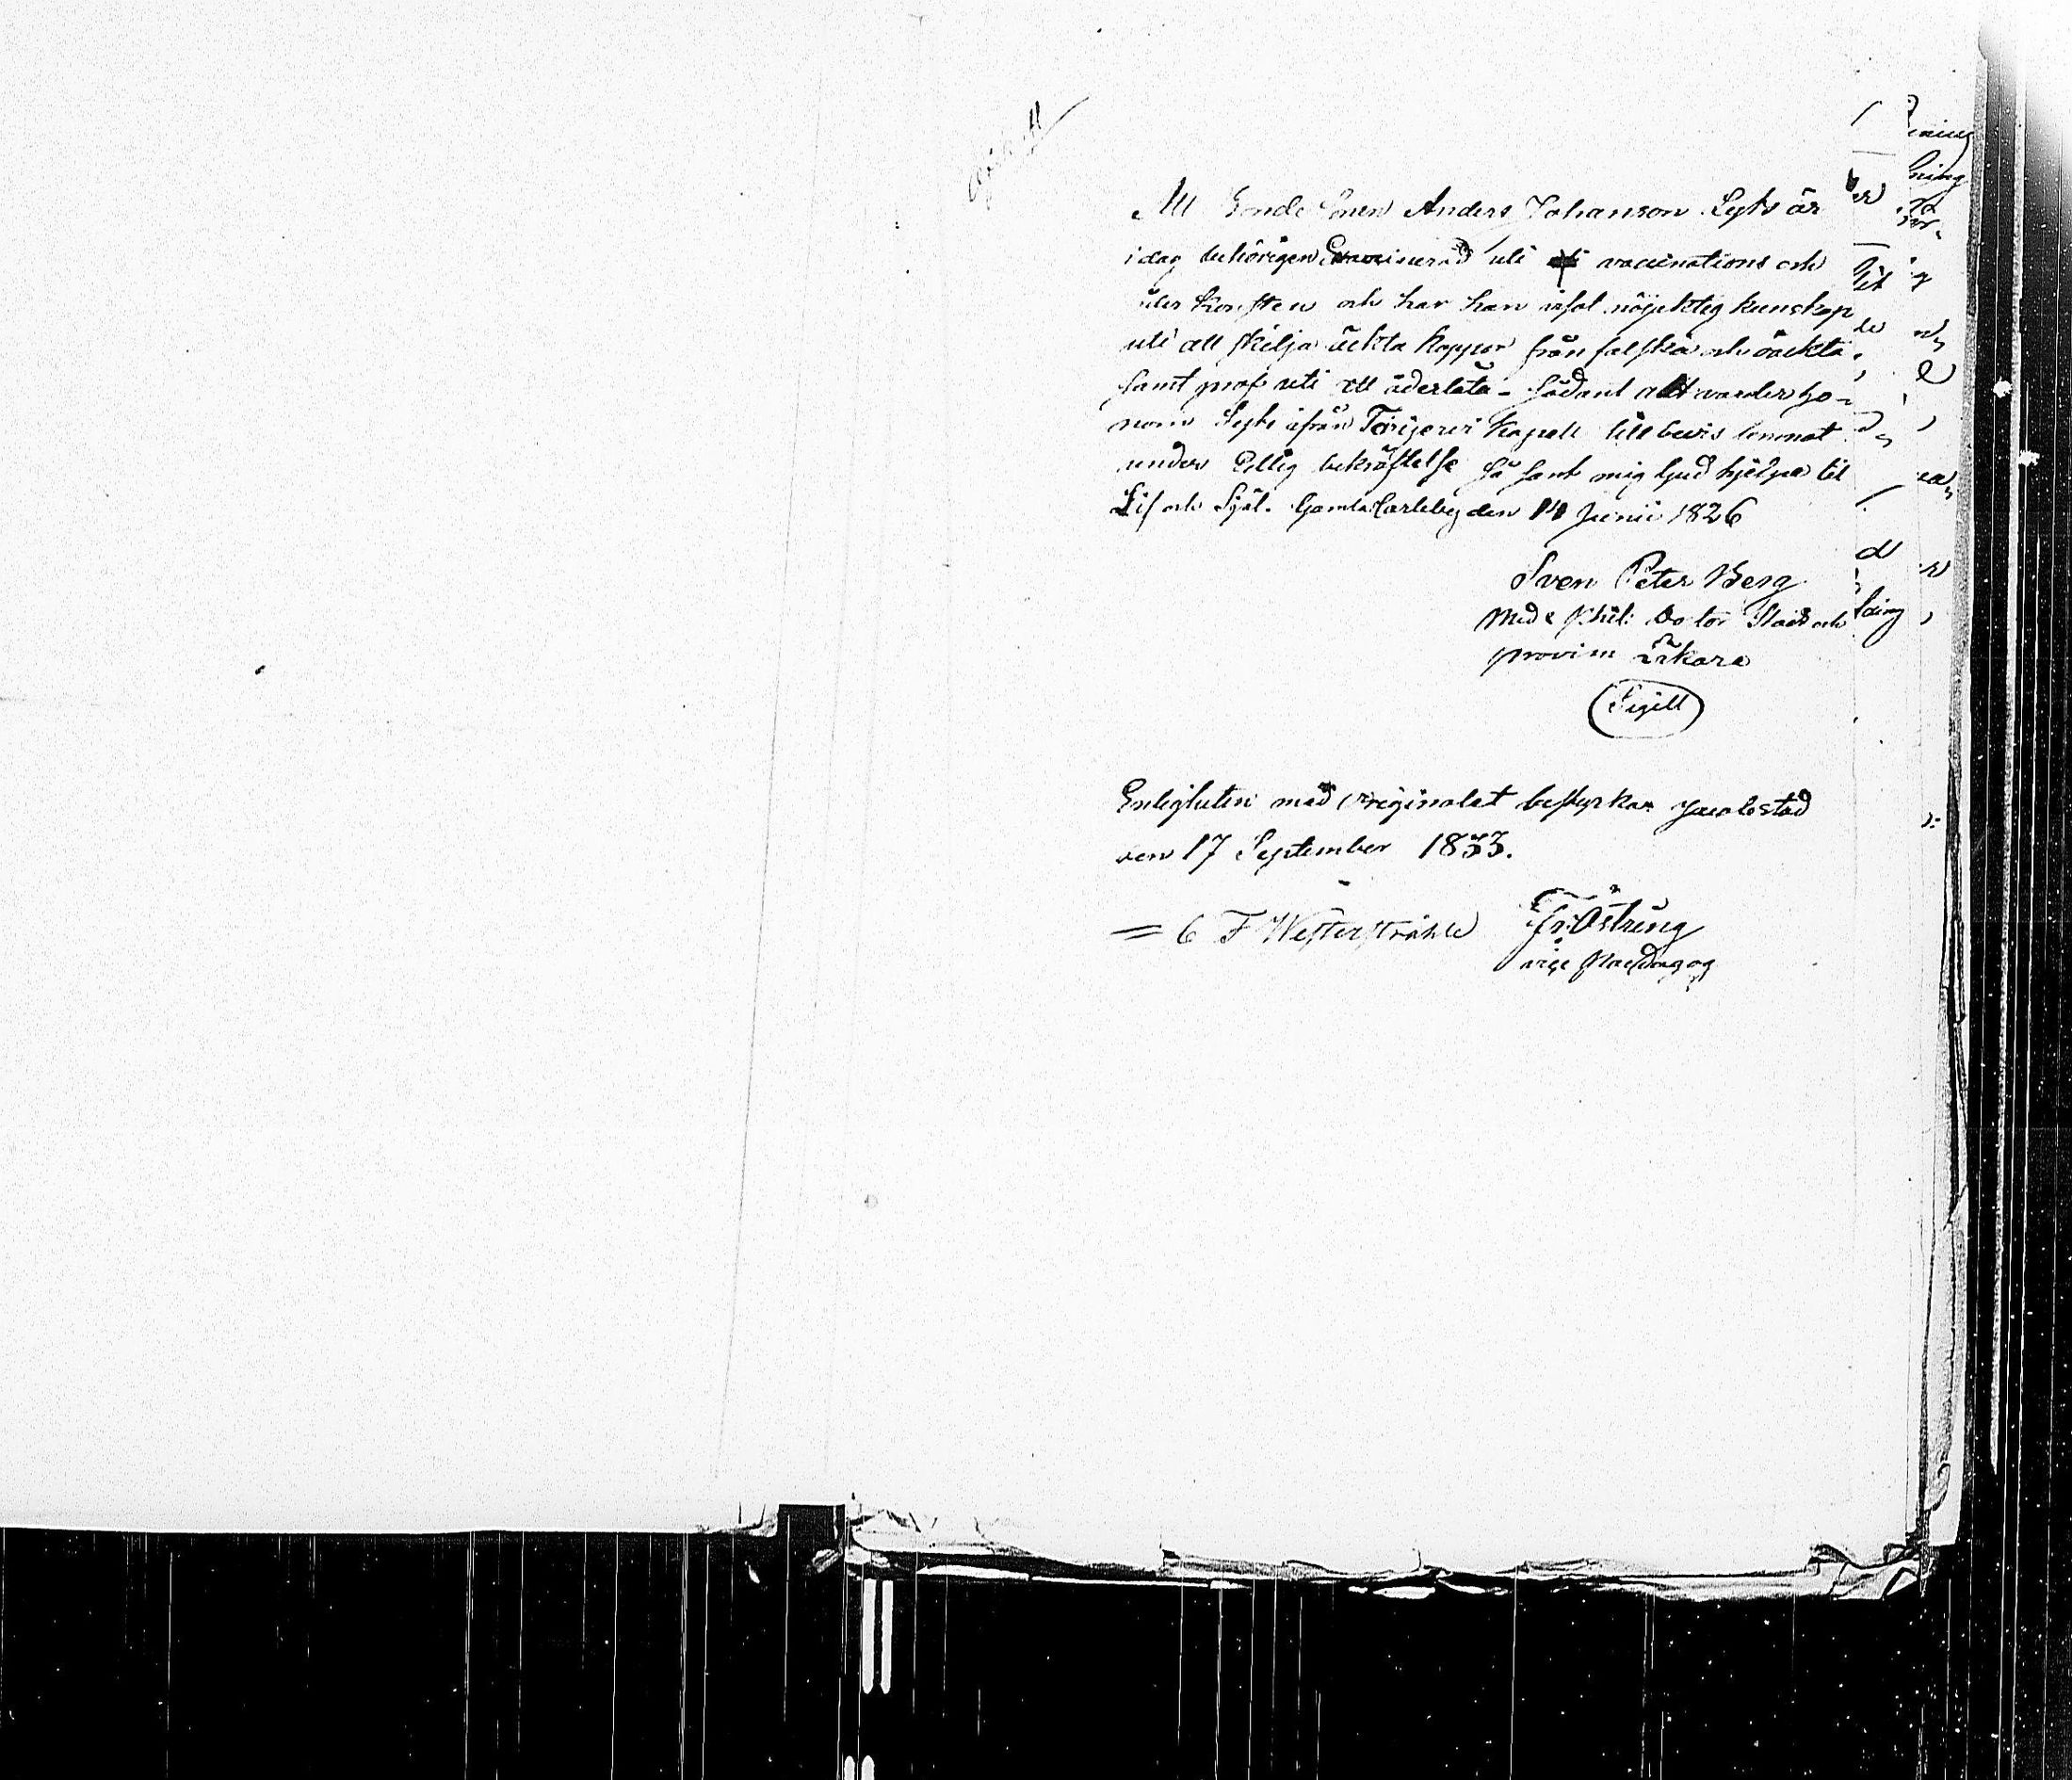 Att Bonde Sonen Anders Johanson Lyts är
idag behörigen Examinerad uti vaccinations och
åder Konsten och har han äfvl nöjaktig kunskap
uti att skilja äckta koppor från falska och oäckta
samt prof uti att åderlåta - sådant allt varder ho-
nom Lyts ifrån Terijervi Kapell till bevis lemnat
under Edlig bekräftelse så sant mig Gud hjelpe til
Lif och Själ. Gamla Carleby den 14 Junii 1826
Sven Peter Berg
Med & Phil: Doctor Stads och
provin Läkare
Sigill
Enligheten med originalet bestyrkar Jacobstad
den 17 September 1833.
= C F Westerstråhle Fr: Östring
vice Paedagog